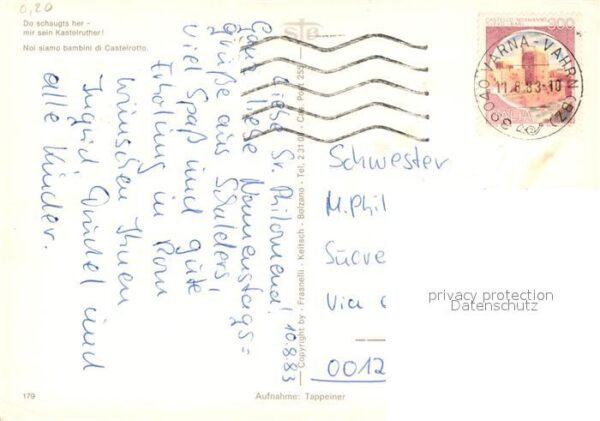 0,20
Do schaugts her -
mir sein Kastelruther!
Noi siamo bambini di Castelrotto.
Liebe Sr. Philomena! 10.8.83
Ganz liebe Namenstags=
grüße aus Schalders,
viel Spaß und gute
Erholung in Rom
wünschen Ihnen
Ingrid und
alle Kinder.
Copyright by - Frasnelli - Keitsch - Bolzano - Tel. 2 31 00 - Cas. Post. 255
CASTELLO NORMANNO
300
39040 VARNA-VAHRN (BZ)
11.8.83-10
Schwester
M. Phil
Suore
Via
0012
privacy protection
Datenschutz
179
Aufnahme: Tappeiner